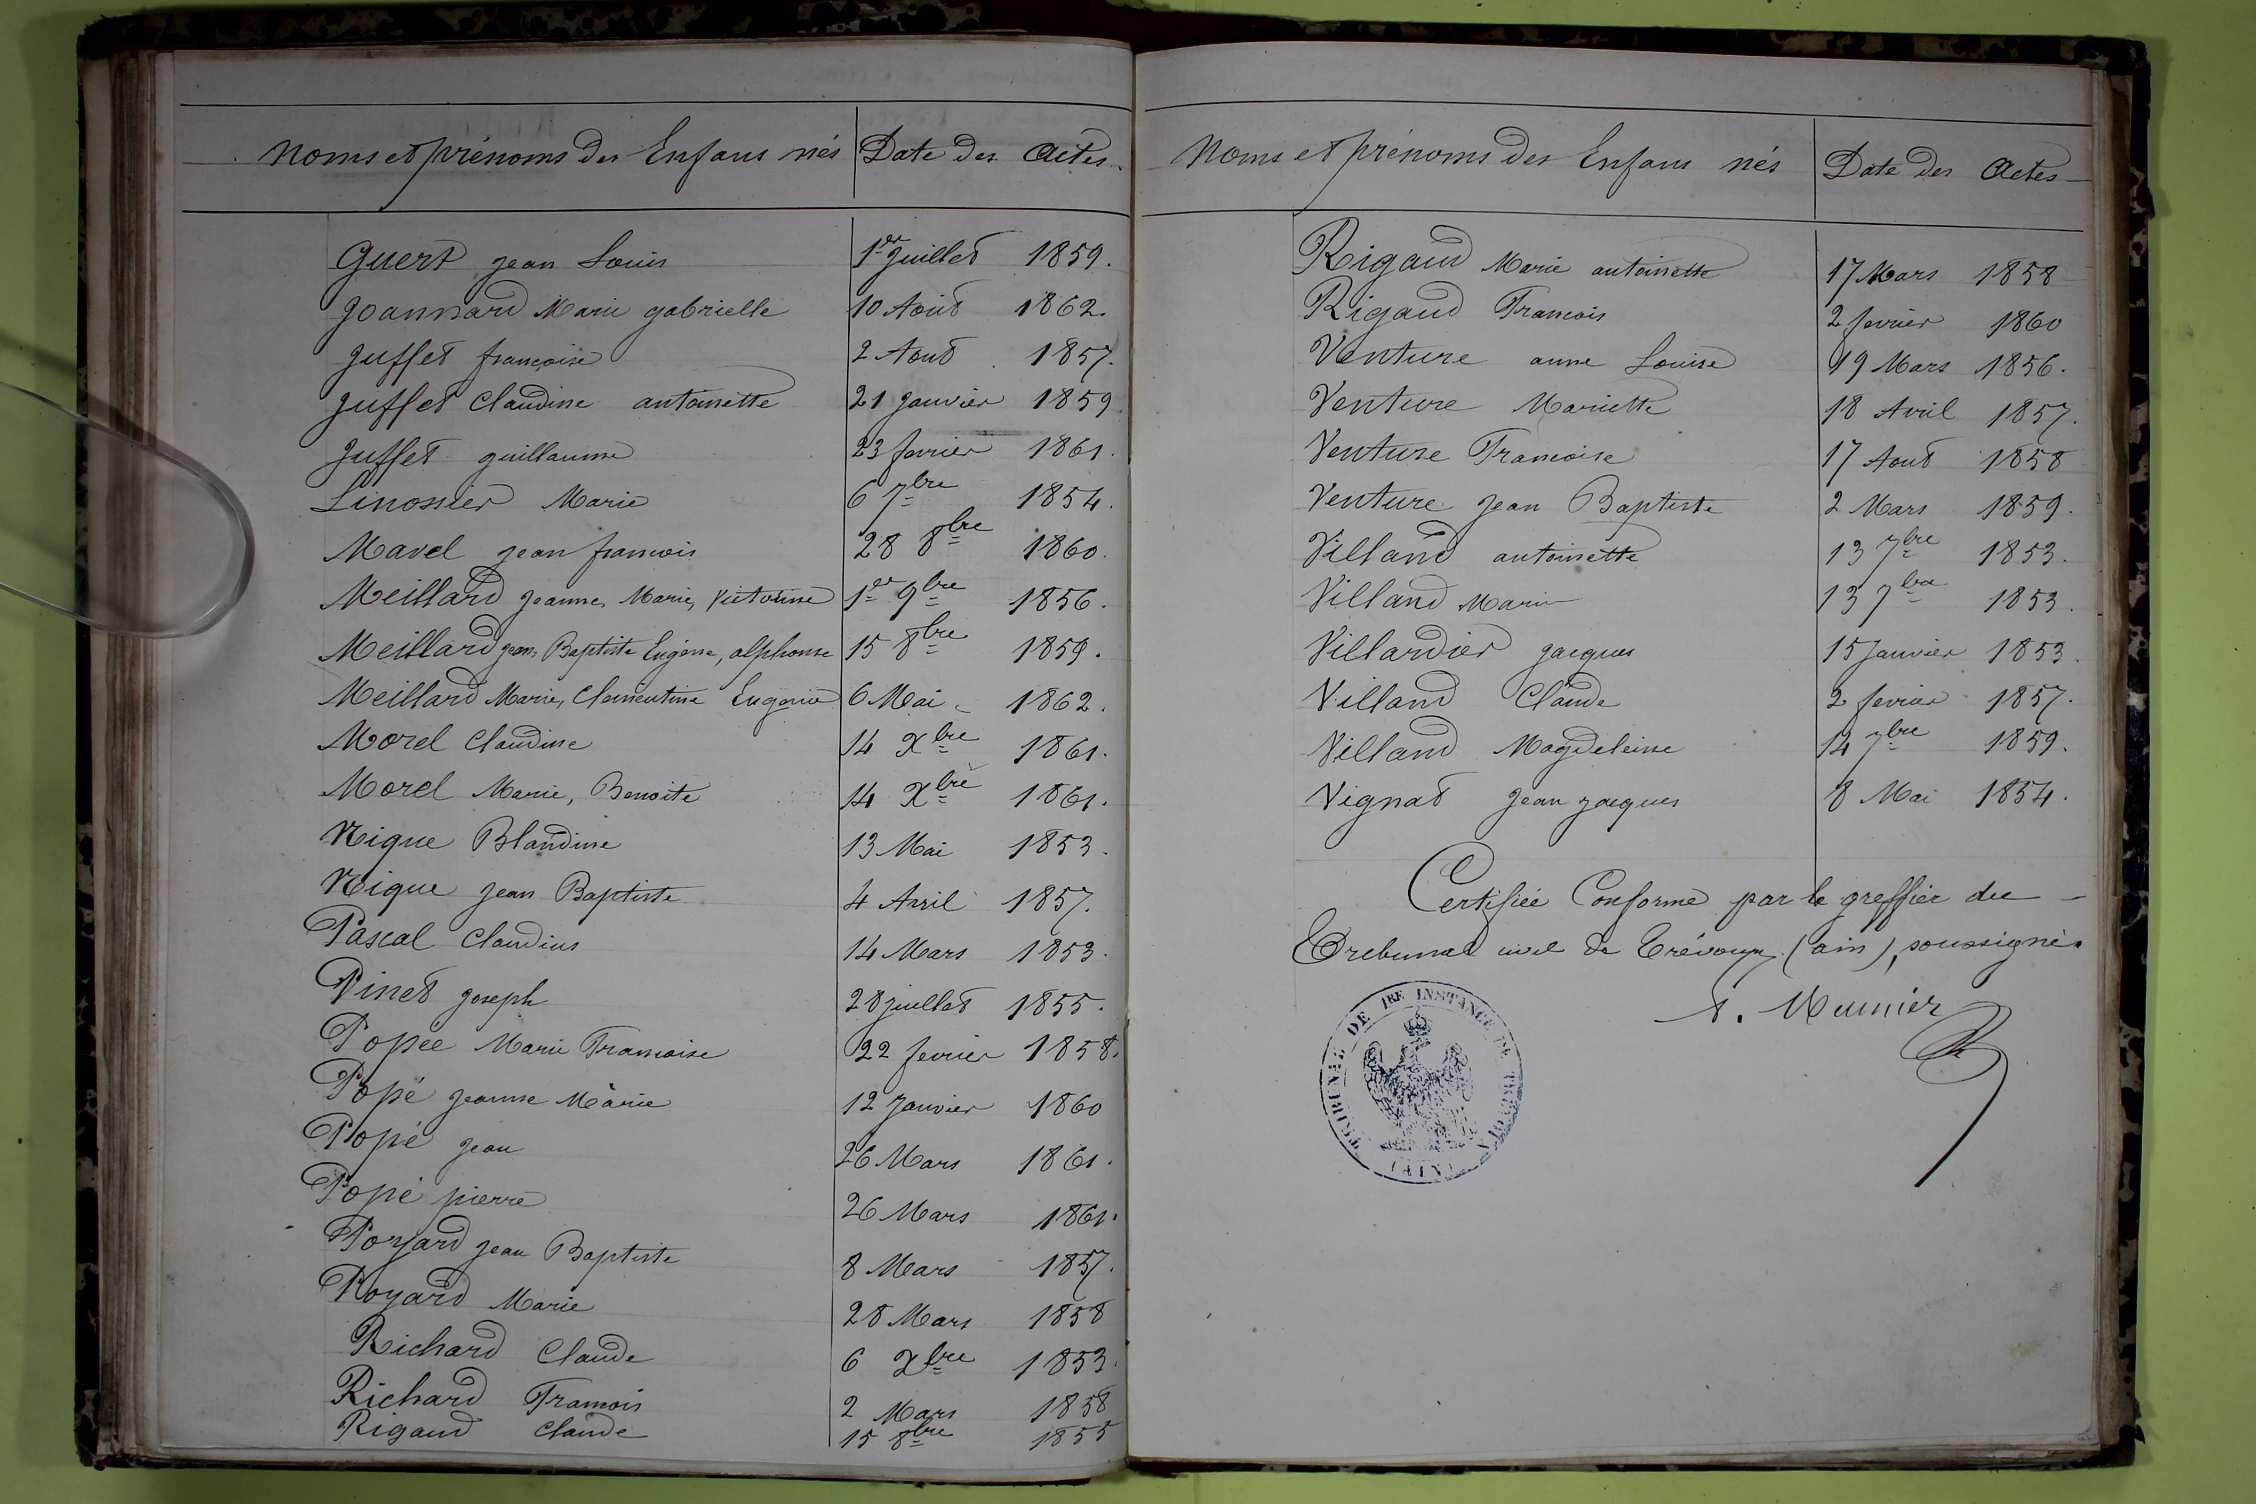 Noms et prénoms des Enfans nés Date des Actes
Guert jean Louis 1er juillet 1859.
Joannard Marie gabrielle 10 Aout 1862.
Juffet françoise 2 Aout 1857.
Juffet Claudine antoinette 21 janvier 1859
Juffet guillaume 23 fevrier 1861.
Linossier Marie 6 7bre 1854.
Mavel jean francois 28 8bre 1860.
Meillard Jeanne, Marie, Victorine 1er 9bre 1856.
Meillard jean, Baptiste Eugène, alphonse 15 8bre 1859.
Meillard Marie, Clementine Eugenie 6 Mai 1862.
Morel Claudine 14 Xbre 1861.
Morel Marie, Benoite 14 Xbre 1861.
Nique Blandine 13 Mai 1853.
Nique Jean Baptiste 4 Avril 1857.
Pascal Claudius 14 Mars 1853.
Pinet joseph 28 juillet 1855.
Popée Marie Francoise 22 fevrier 1858.
Popé jeanne Marie 12 janvier 1860
Popé jean 26 Mars 1861.
Popé pierre 26 Mars 1861.
Poyard jean Baptiste 8 Mars 1857.
Poyard Marie 28 Mars 1858
Richard Claude 6 Xbre 1853.
Richard Francois 2 Mars 1858
Rigaud Claude 15 8bre 1855
Noms et prénoms des Enfans nés Date des Actes
Rigaud Marie antoinette 17 Mars 1858
Rigaud Francois 2 fevrier 1860
Venture anne Louise 19 Mars 1856.
Venture Mariette 18 Avril 1857.
Venture Francoise 17 Aout 1858
Venture jean Baptiste 2 Mars 1859.
Villand antoinette 13 7bre 1853.
Villand Marie 13 7bre 1853.
Villardier jacques 15 Janvier 1853.
Villand Claude 2 fevrier 1857.
Villand Magdeleine 14 7bre 1859.
Vignat jean jacques 8 Mai 1854.
Certifiée Conforme par le greffier du
Tribunal civil de Trévoux (ain), soussigné.
A. Meunier
TRIBUNAL DE 1RE INSTANCE DE TRÉVOUX
(AIN)